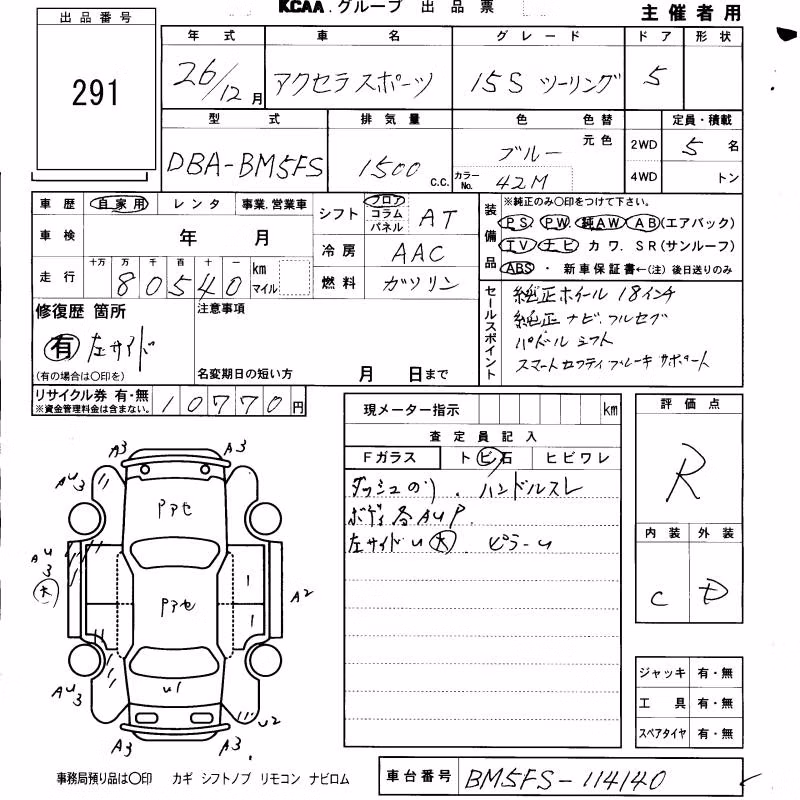 KCAA.グループ 出品票
主催者用
出品番号
291
年式 車名 グレード ドア 形状
26/12月 アクセラスポーツ 15S ツーリング 5
型式 排気量 色 色替 定員・積載
DBA-BM5FS 1500 C.C. ブルー 元色 2WD 5名
カラーNo. 42M 4WD トン
車歴 自家用 レンタ 事業.営業車
シフト フロア コラム パネル AT
車検 年 月
冷房 AAC
走行 十万 万 千 百 十 一 km マイル
80540
燃料 ガソリン
装備品 ※純正のみ〇印をつけて下さい。
PS. PW. 純AW AB(エアバック)
TV ナビ カワ. SR(サンルーフ)
ABS ・ 新車保証書←(注)後日送りのみ
修復歴 箇所
有 左サイド
(有の場合は〇印を)
注意事項
名変期日の短い方 月 日まで
セールスポイント
純正ホイール 18インチ
純正ナビ.フルセグ
パドルシフト
スマートセフティブレーキサポート
リサイクル券 有・無
※資金管理料金は含まない。
10770円
現メーター指示 km
査定員記入
Fガラス ト ビ 石 ヒビワレ
ダッシュのり . ハンドルスレ
ボディ各AUP.
左サイドU 大 ピラーU
評価点
R
内装 外装
C D
A3 A3
AU3
Pアセ
AU3
大
Pアセ
A2
AU3
U1
U2
A3 A3
ジャッキ 有・無
工具 有・無
スペアタイヤ 有・無
事務局預り品は〇印 カギ シフトノブ リモコン ナビロム
車台番号 BM5FS-114140